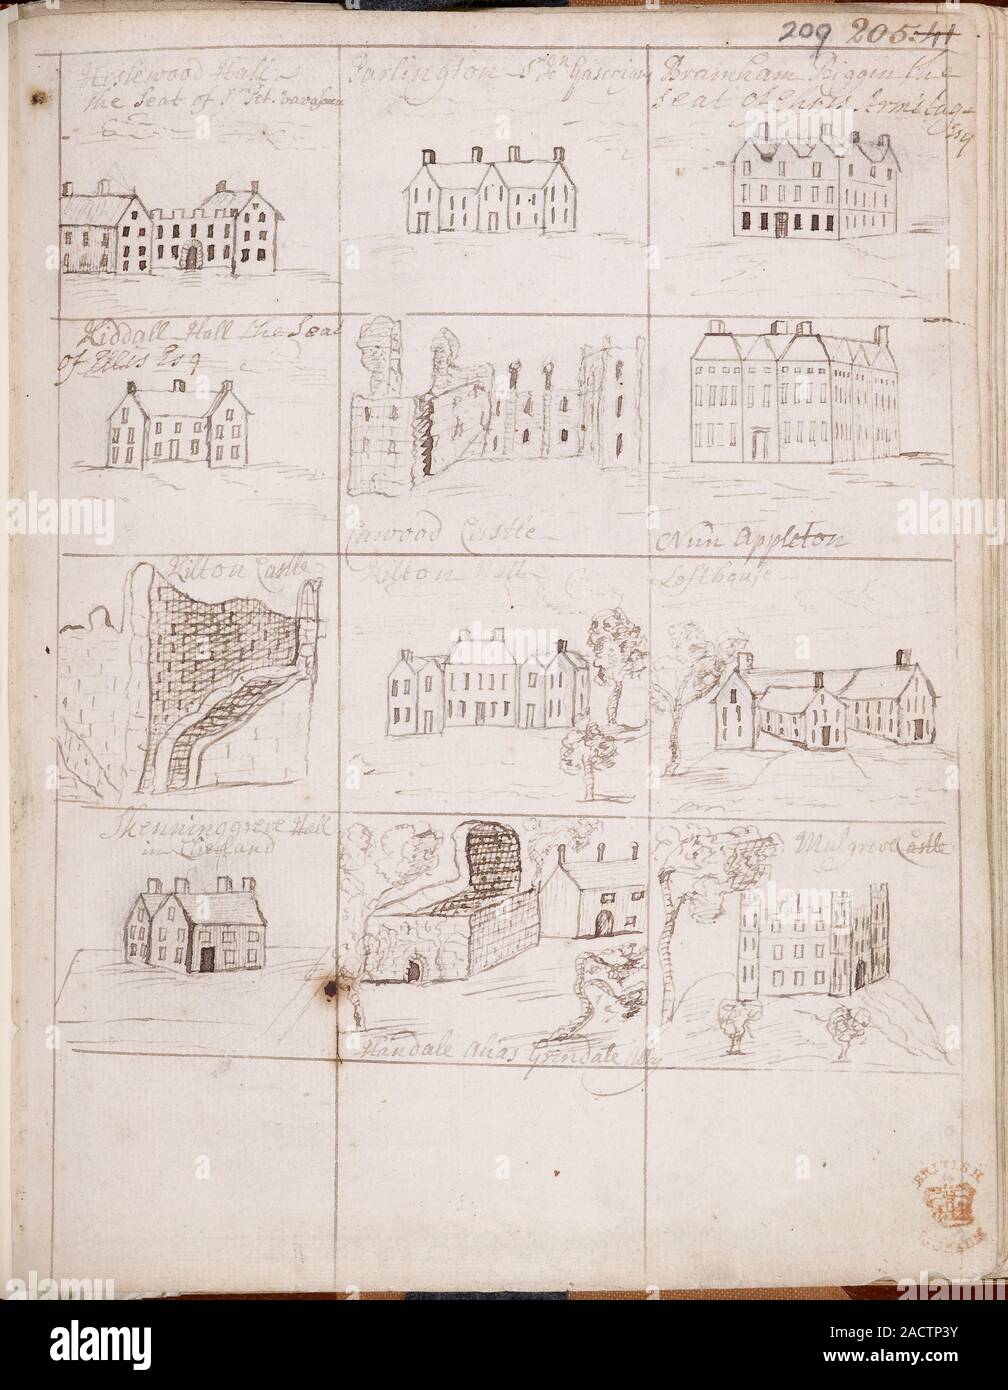 209 205 41
Heslewood Hall
the Seat of Sr. Pet. Vavasour
Parlington Sr Jon Gascoign
Bramham Biggin the
Seat of Chris Armitag
Esq
Kiddall Hall the Seat
of Ellis Esq
Cawood Castle
Nun Appleton
Kilton Castle
Kilton Hall
Lofthouse
Skenninggreve Hall
in Cleeland
Handale Alias Grendale Abby
Mulgreve Castle
BRITISH
MUSEUM
alamy
Image ID: 2ACTP3Y
www.alamy.com